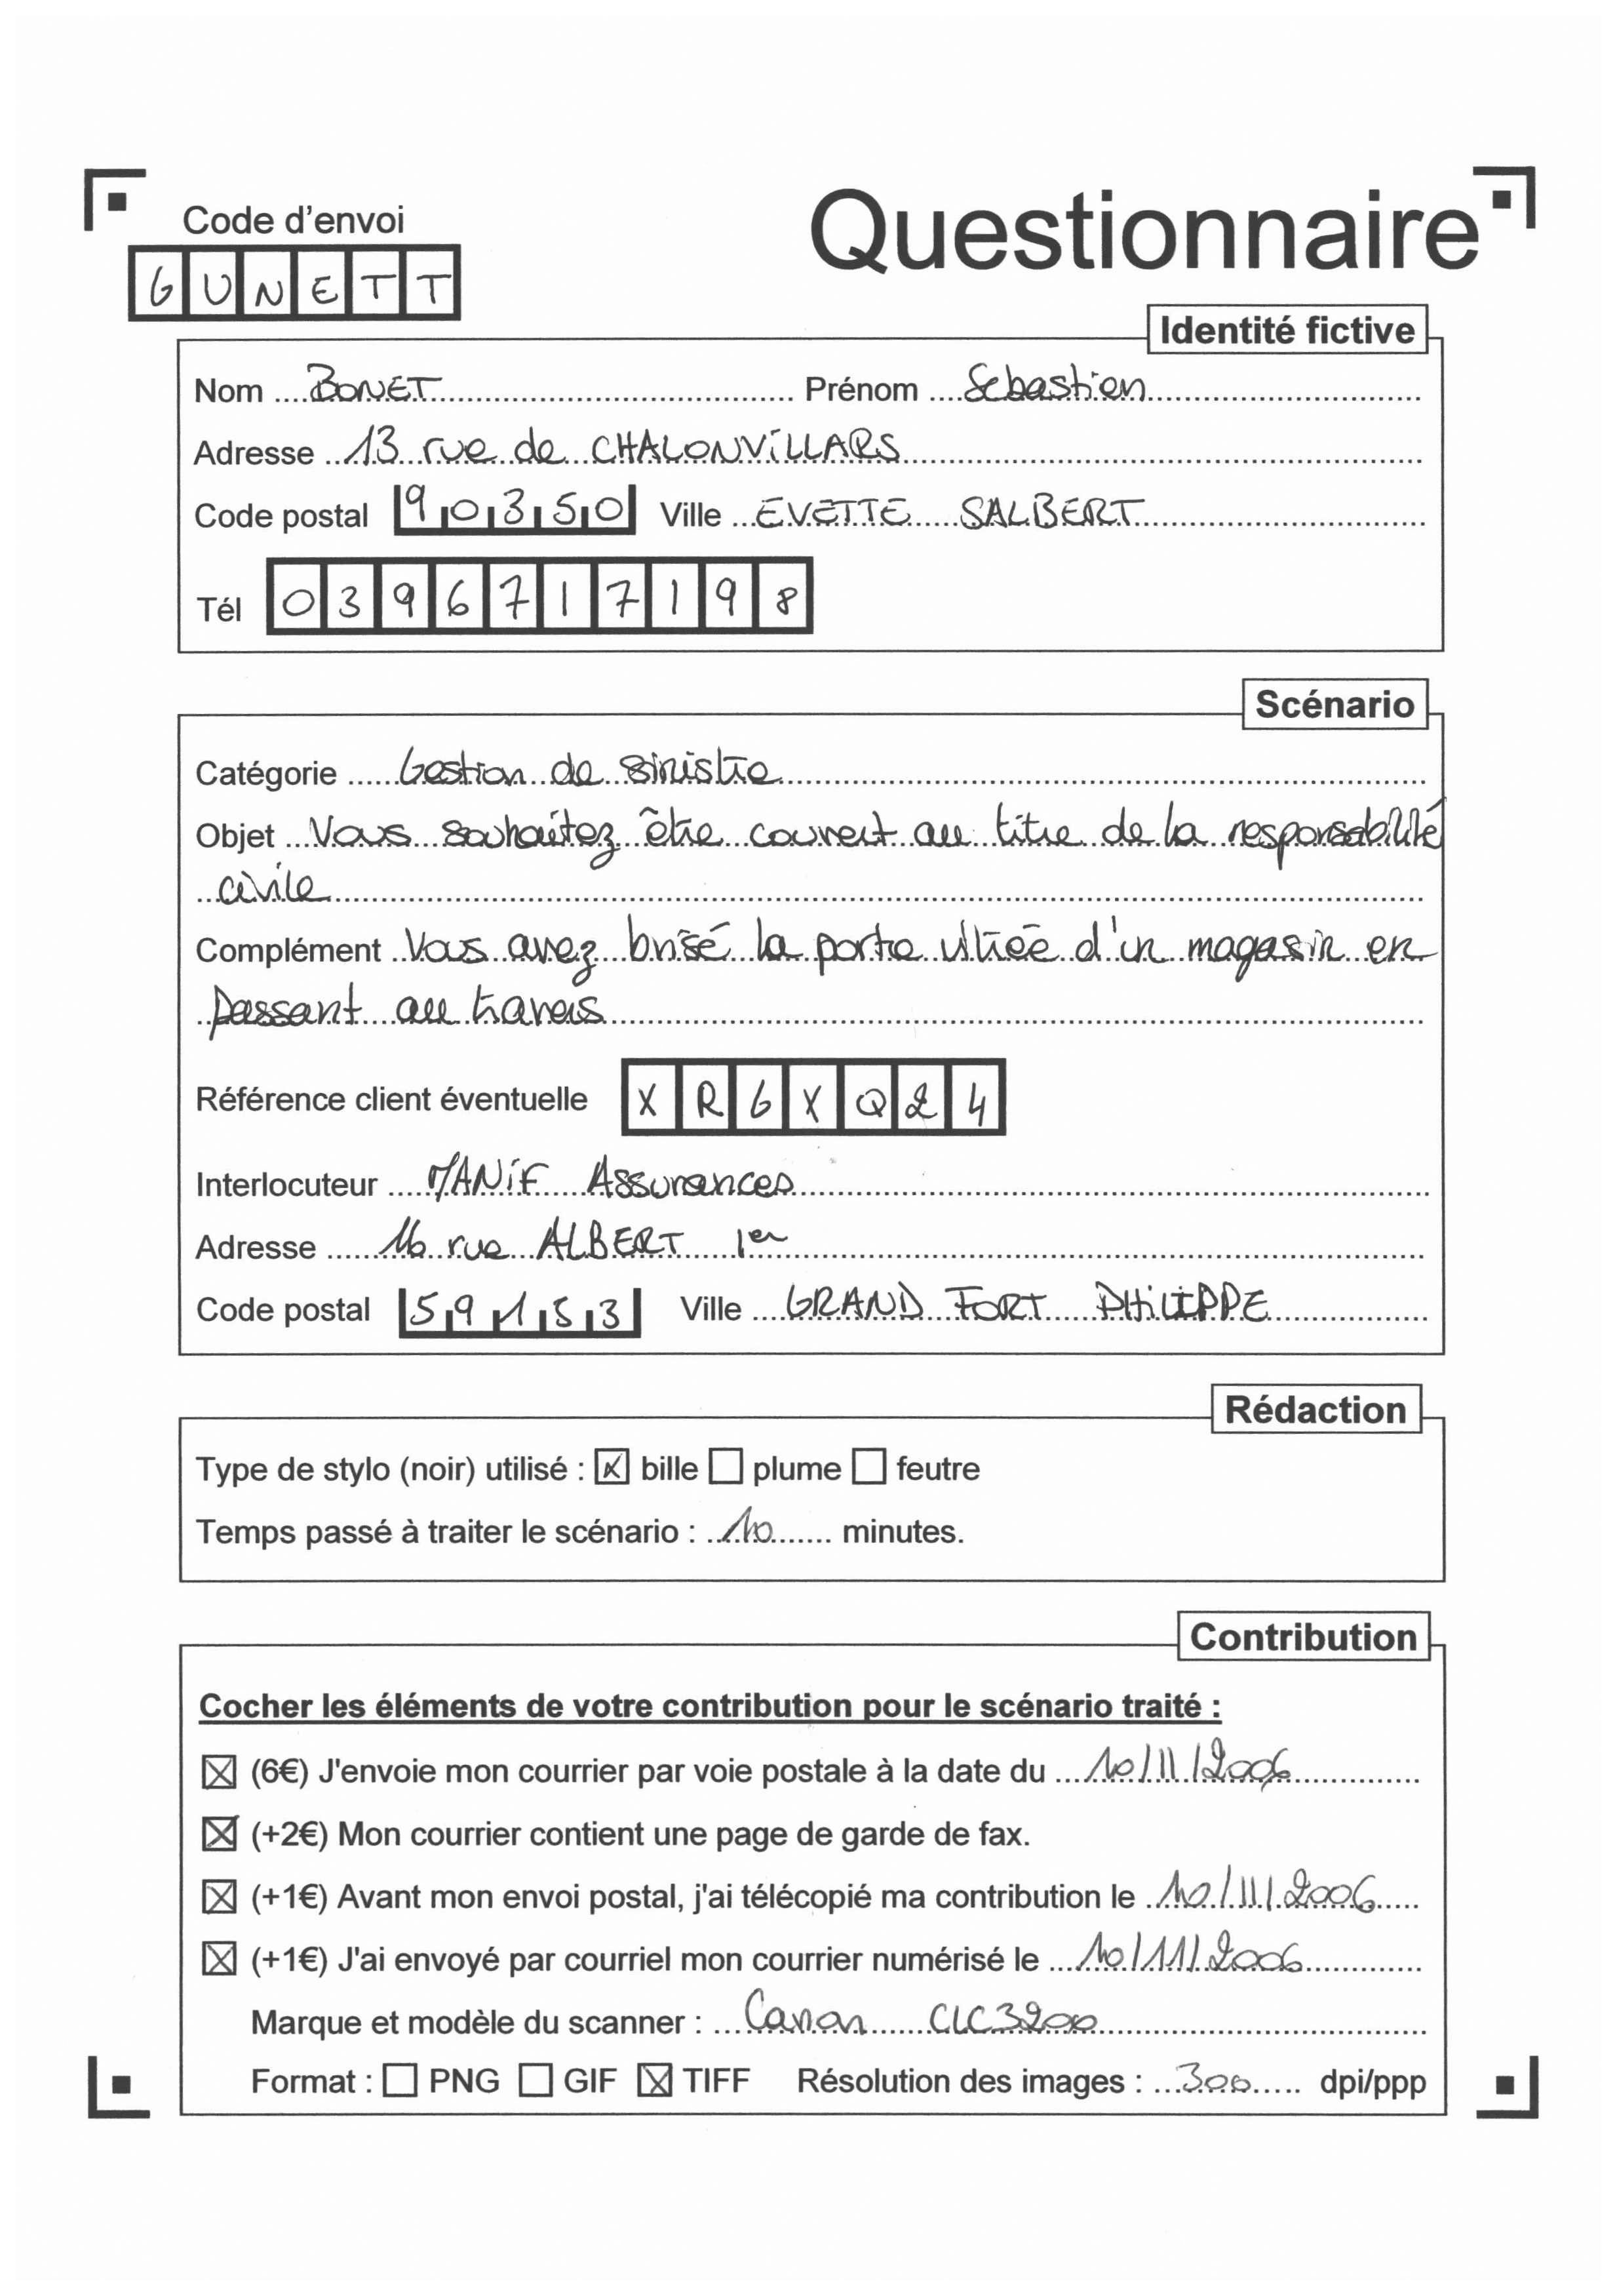 Code d'envoi
Questionnaire
GUNETT
Identité fictive
Nom BONET Prénom Sebastien
Adresse 13 rue de CHALONVILLARS
Code postal 90350 Ville EVETTE SALBERT
Tél 0396717198
Scénario
Catégorie Gestion de sinistre
Objet Vous souhaitez être couvert au titre de la responsabilité
civile
Complément Vous avez brisé la porte vitrée d'un magasin en
passant au travers
Référence client éventuelle XR6XQ24
Interlocuteur MANIF Assurances
Adresse 16 rue ALBERT 1er
Code postal 59153 Ville GRAND FORT PHILIPPE
Rédaction
Type de stylo (noir) utilisé : ☒ bille ☐ plume ☐ feutre
Temps passé à traiter le scénario : 10 minutes.
Contribution
Cocher les éléments de votre contribution pour le scénario traité :
☒ (6€) J'envoie mon courrier par voie postale à la date du 10/11/2006
☒ (+2€) Mon courrier contient une page de garde de fax.
☒ (+1€) Avant mon envoi postal, j'ai télécopié ma contribution le 10/11/2006
☒ (+1€) J'ai envoyé par courriel mon courrier numérisé le 10/11/2006
Marque et modèle du scanner : Canon CLC3200
Format : ☐ PNG ☐ GIF ☒ TIFF Résolution des images : 300 dpi/ppp